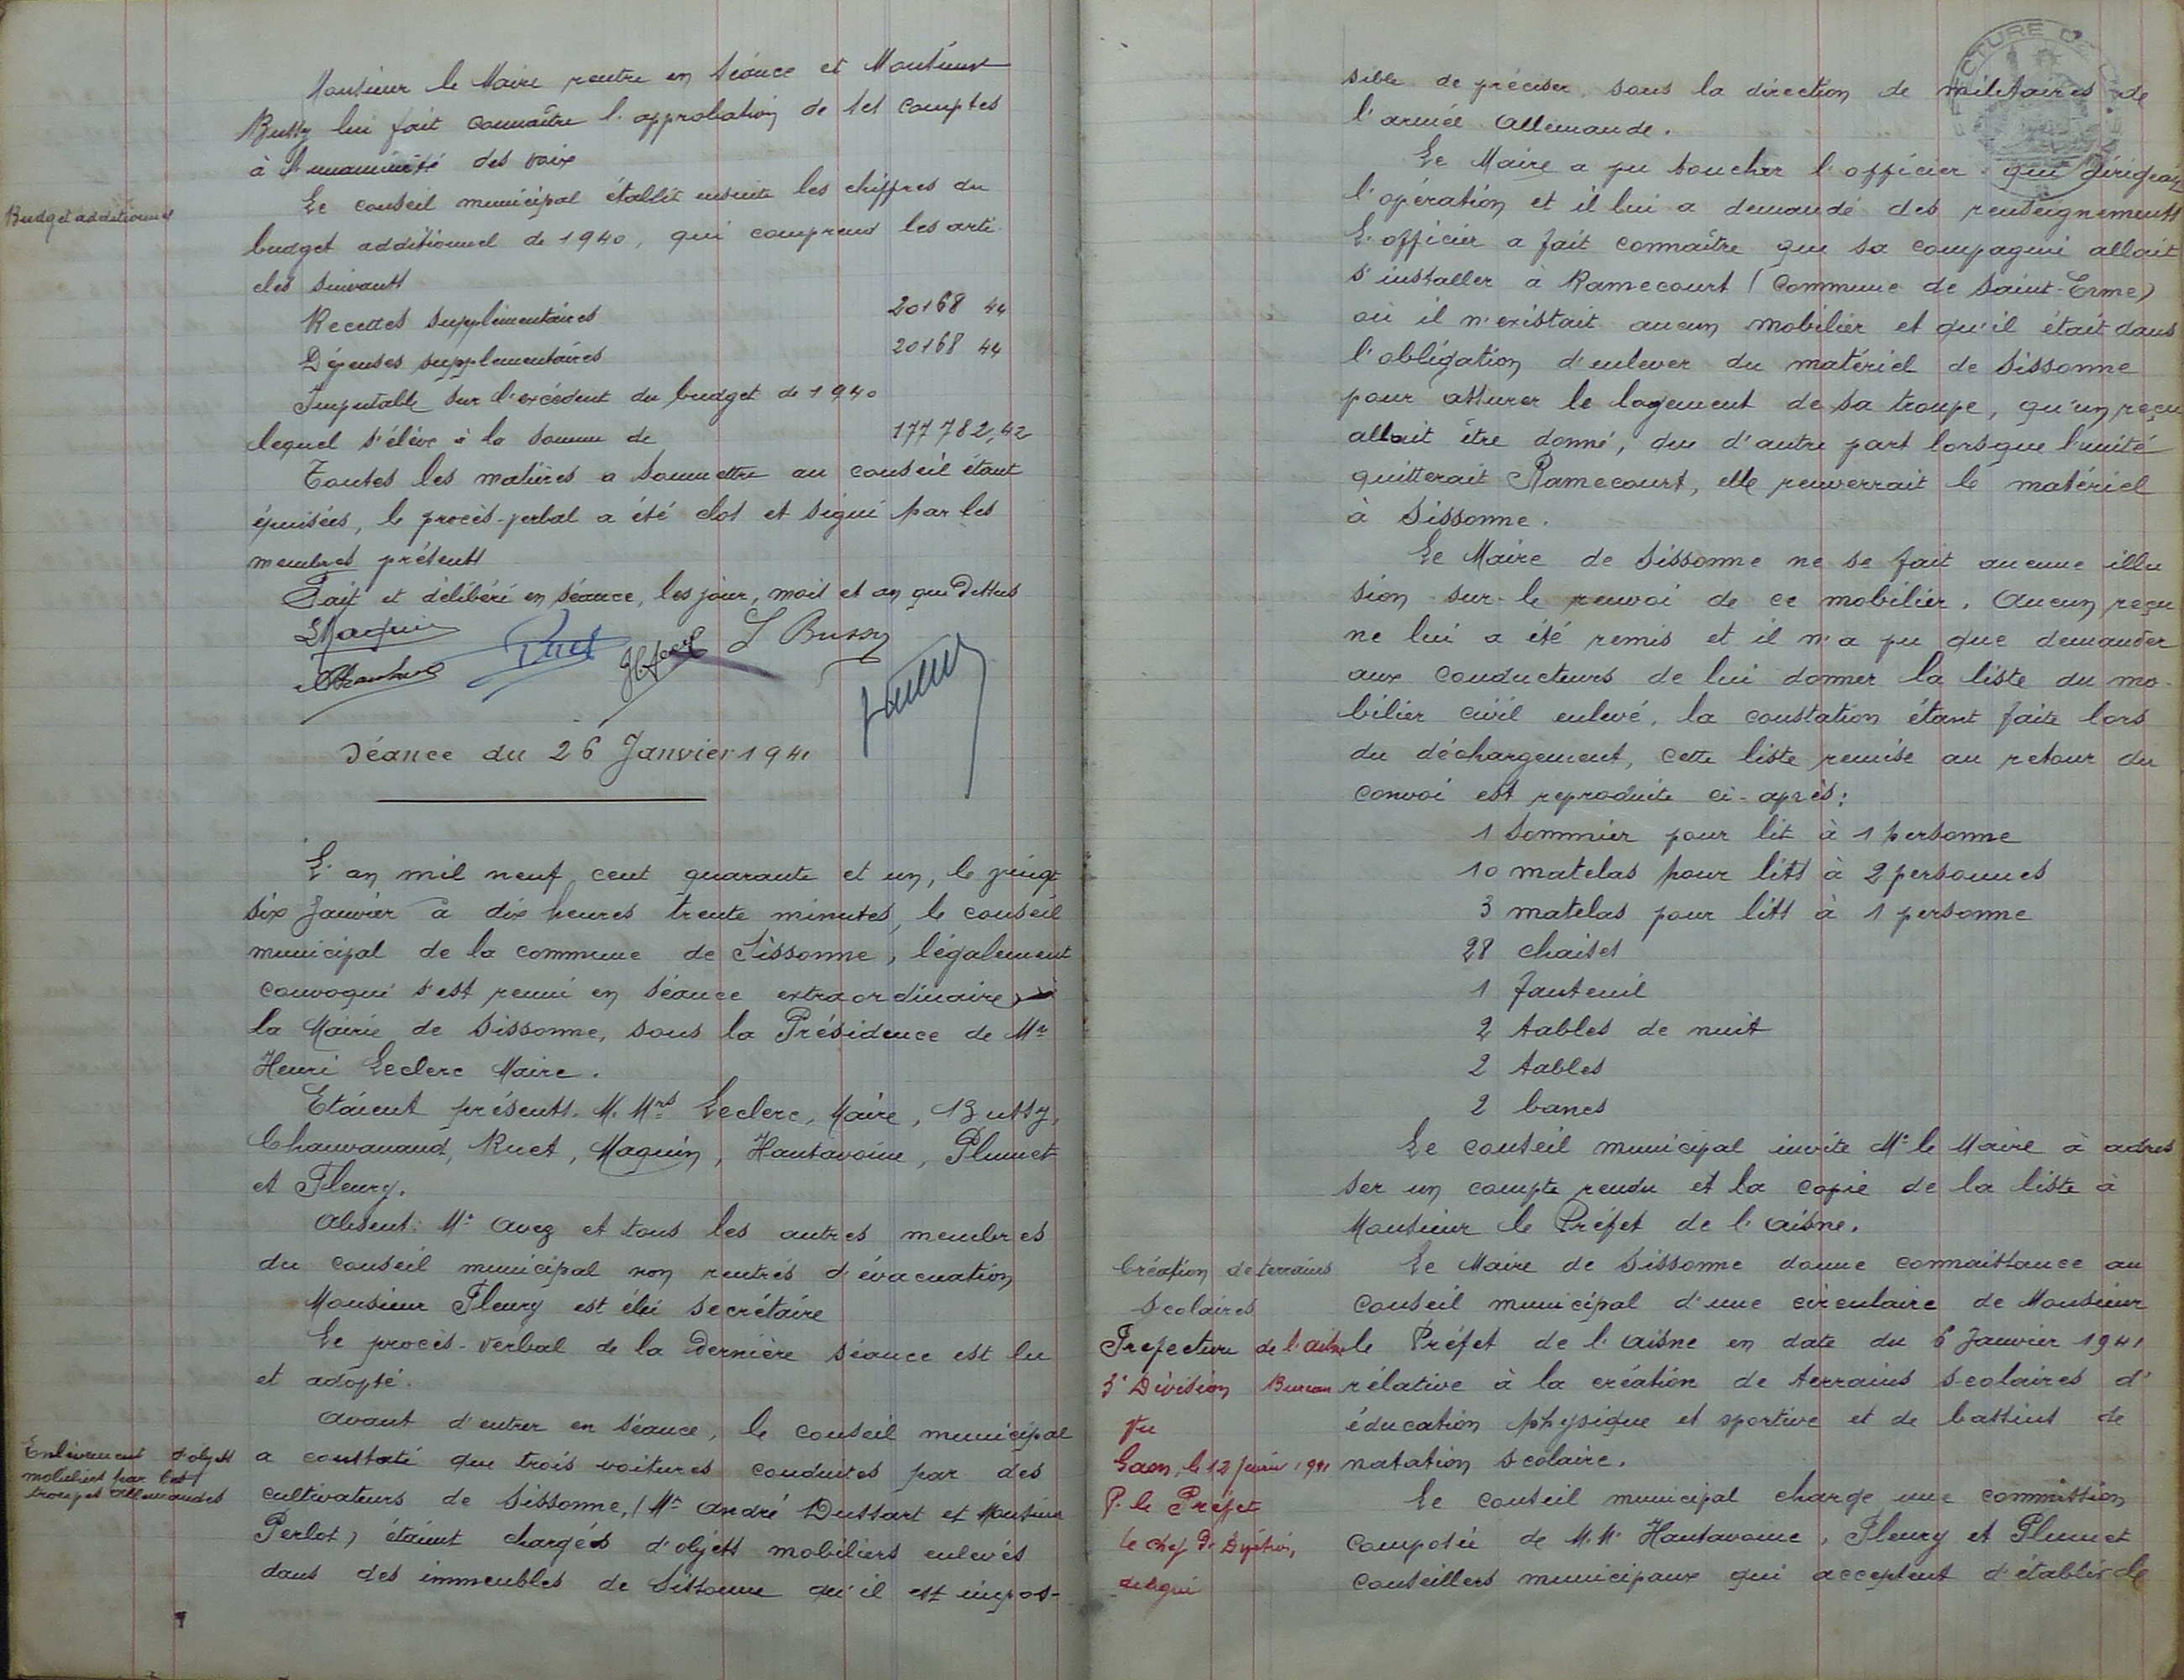 Monsieur le Maire rentre en séance et Monsieur
Bussy lui fait connaître l'approbation de ses comptes
à l'unanimité des voix
Budget additionnel
Le conseil municipal établit ensuite les chiffres du
budget additionnel de 1940, qui comprend les arti
cles suivants
Recettes supplémentaires 20168 44
Dépenses supplémentaires 20168 44
Imputable sur l'excédent du budget de 1940
lequel s'élève à la somme de 177 782,42
Toutes les matières a soumettre au conseil étant
épuisées, le procès-verbal a été clos et signé par les
membres présents
Fait et délibéré en séance, les jour, mois et an que Dessus
Maquin
Ruet
L Bussy
Séance du 26 Janvier 1941
L'an mil neuf cent quarante et un, le vingt
six Janvier à dix heures trente minutes, le conseil
municipal de la commune de Sissonne, légalement
convoqué s'est reuni en séance extraordinaire à
la Mairie de Sissonne, sous la Présidence de Mr
Henri Leclerc Maire.
Etaient présents. M. Mrs Leclerc, Maire, Bussy,
Chauvanaud, Ruet, Maquin, Hautavoine, Plumet
et Fleury.
Absent: Mr Avez et tous les autres membres
du conseil municipal non rentrés d'évacuation
Monsieur Fleury est élu secrétaire
Le procès-verbal de la Dernière séance est lu
et adopté.
Avant d'entrer en séance, le conseil municipal
Enlèvement d'objets
mobiliers par les
troupes allemandes
a constaté que trois voitures conduites par des
cultivateurs de Sissonne, (Mr André Dussart et Monsieur
Perlot) étaient chargées d'objets mobiliers enlevés
dans des immeubles de Sissonne qu'il est impos-
sible de préciser sous la direction de militaires de
l'armée Allemande.
Le Maire a pu toucher l'officier qui dirigeait
l'opération et il lui a demandé des renseignements
L'officier a fait connaître que sa compagnie allait
s'installer à Ramecourt (Commune de Saint-Erme)
où il n'existait aucun mobilier et qu'il était dans
l'obligation d'enlever du matériel de Sissonne
pour assurer le logement de sa troupe, qu'un reçu
allait être donné, que d'autre part lorsque l'unité
quitterait Ramecourt, elle renverrait le matériel
à Sissonne.
Le Maire de Sissonne ne se fait aucune illu
sion sur le renvoi de ce mobilier. Aucun reçu
ne lui a été remis et il n'a pu que demander
aux conducteurs de lui donner la liste du mo-
bilier civil enlevé, la constation étant faite lors
du déchargement, cette liste remise au retour du
convoi est reproduite ci-après:
1 Sommier pour lit à 1 personne
10 matelas pour lits à 2 personnes
3 matelas pour lits à 1 personne
28 chaises
1 fauteuil
2 tables de nuit
2 tables
2 bancs
Le conseil municipal invite Mr le Maire à adres
ser un compte rendu et la copie de la liste à
Monsieur le Préfet de l'Aisne.
Création de terrains
scolaires
Le Maire de Sissonne donne connaissance au
conseil municipal d'une circulaire de Monsieur
le Préfet de l'Aisne en date du 6 Janvier 1941
rélative à la création de terrains scolaires d'
éducation physique et sportive et de bassins de
natation scolaire.
Préfecture de l'Aisne
3e Division Bureau
Vu
Laon, le 12 1941
P. le Préfet
le chef de Division,
délégué
Le conseil municipal charge une commission
composée de M. Mr Hautavoine, Fleury et Plumet
conseillers municipaux qui acceptent d'établir de